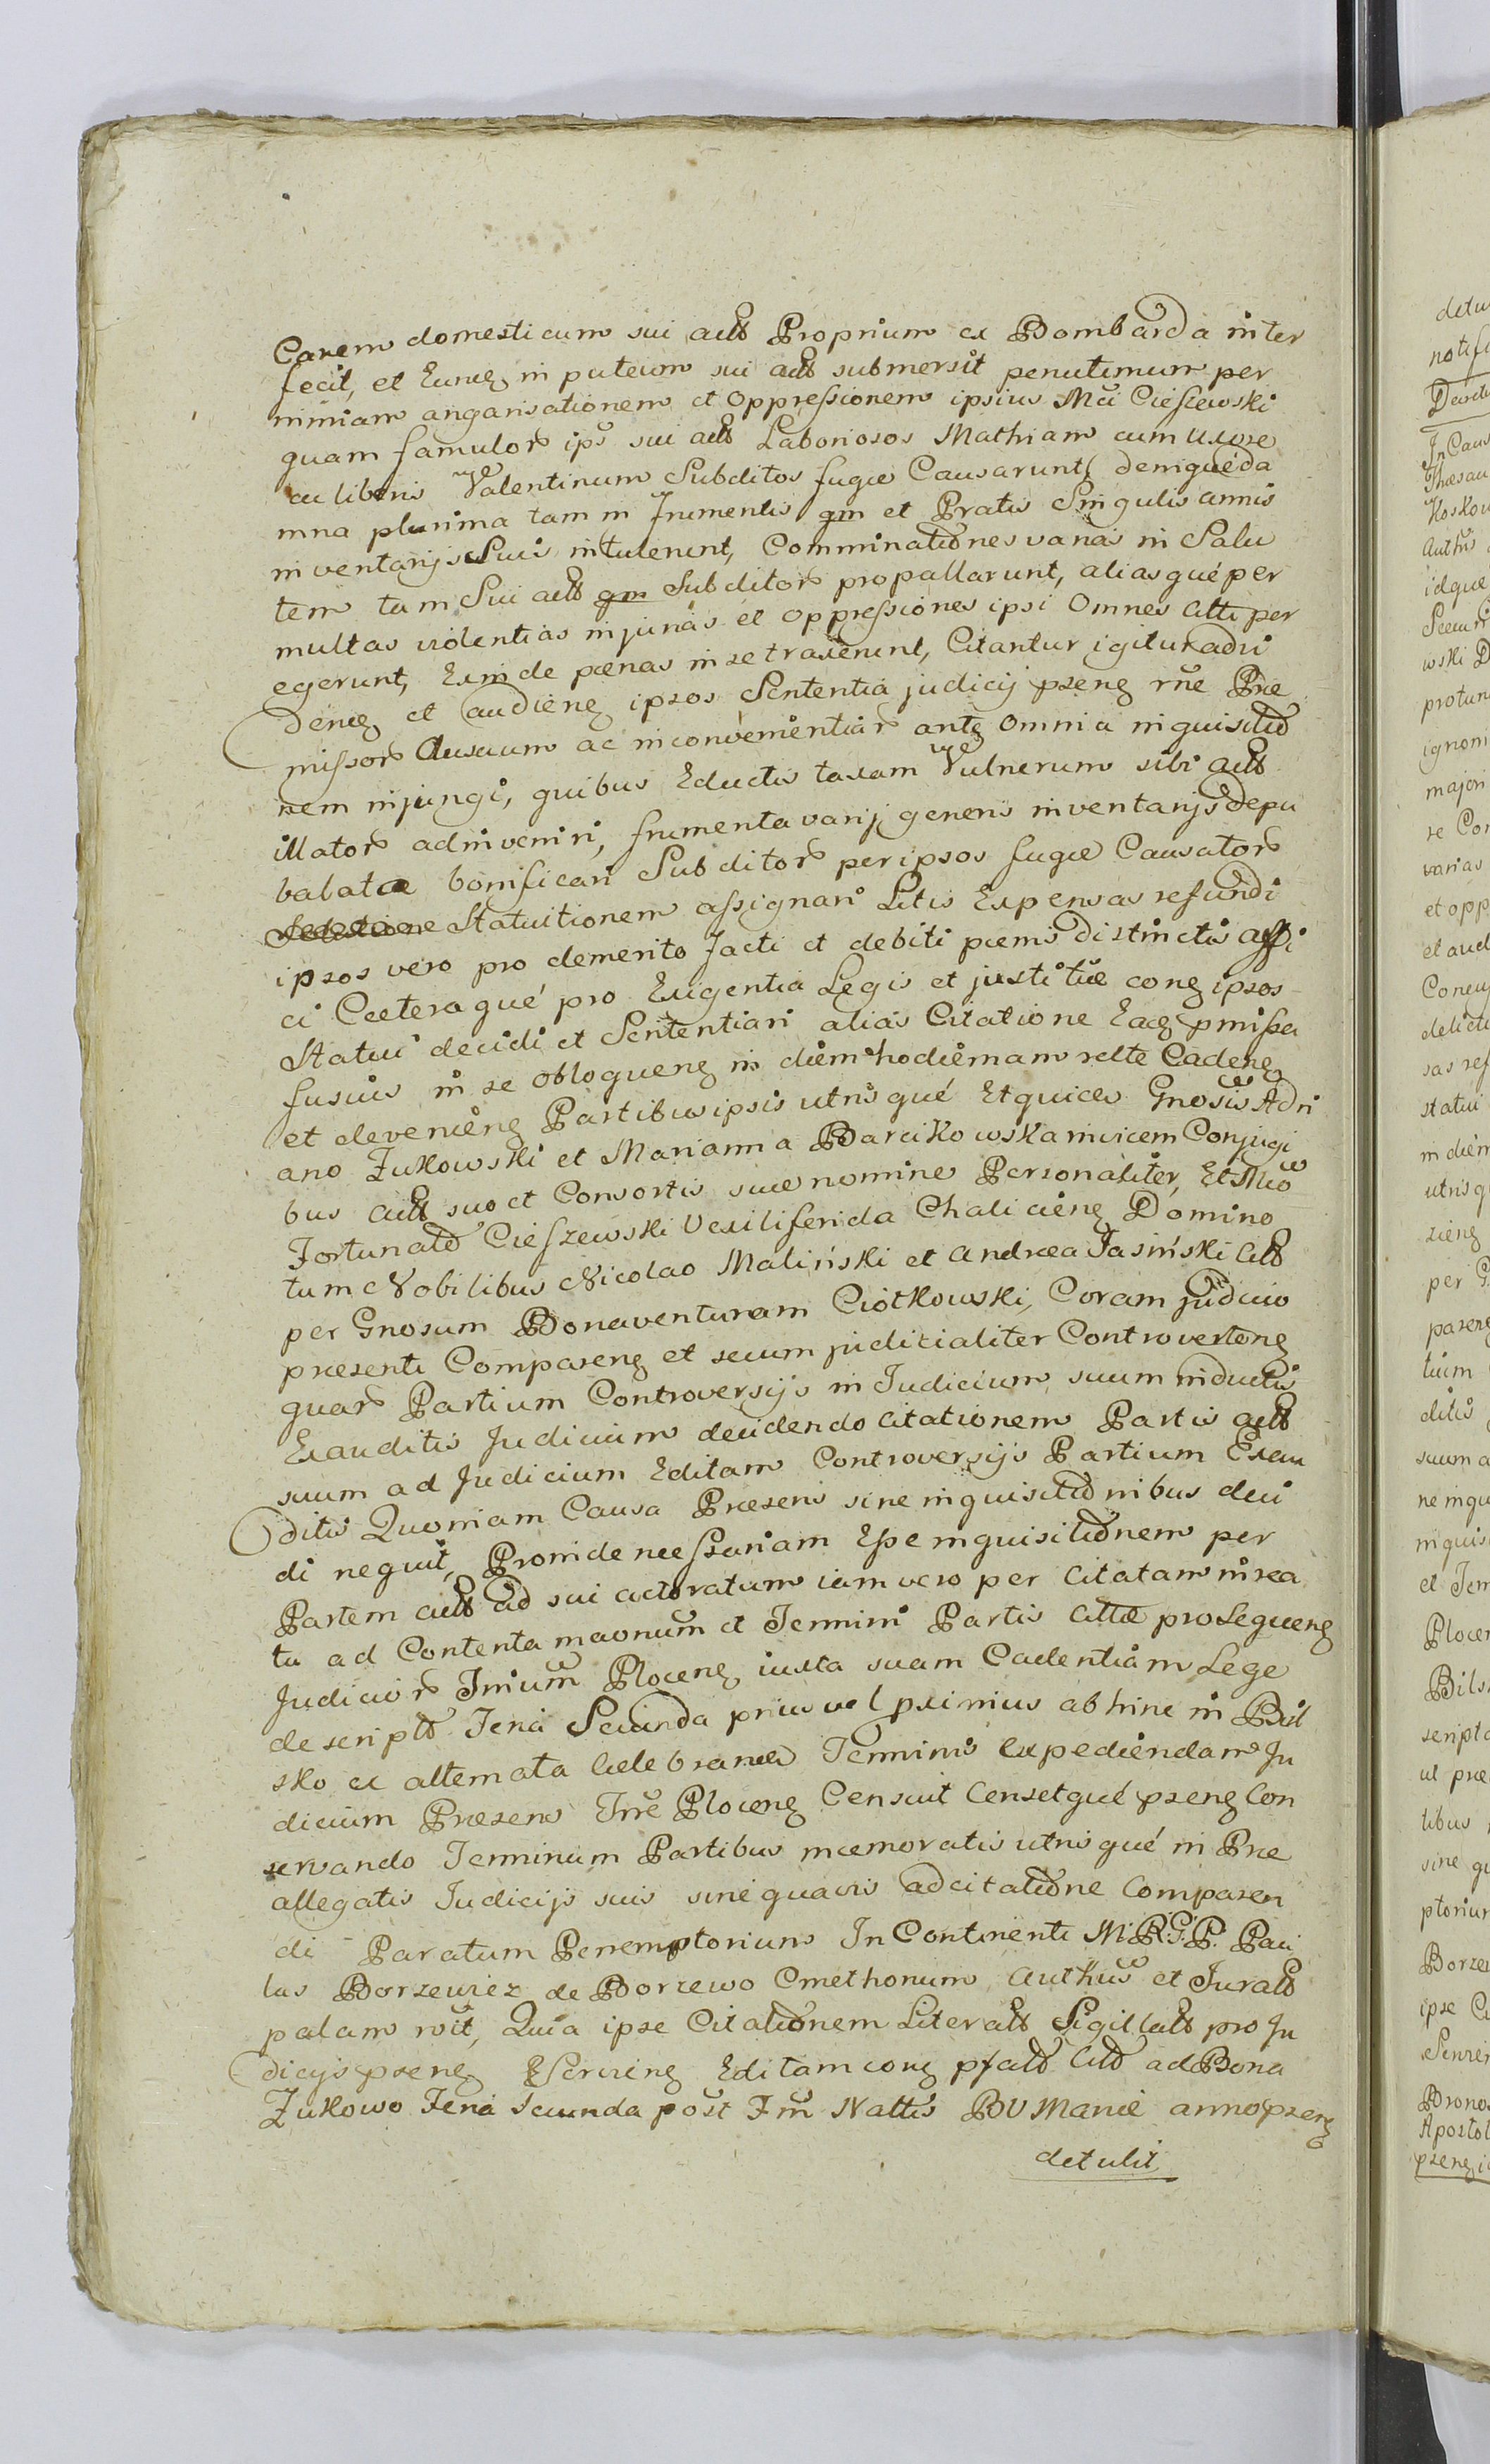 Canem domesticum sui actt Proprium ex Bombarda inter
fecit, et Eung in puteum sui actt submersit penultimum per
nimiam angarisationem et oppressionem ipsius Mci Ciesiewski
quam famulor ips sui actt Laboriosos Mathiam cum uxore
cu liberis Valentinum Subditos fugæ Causarunt, deniqué da
mna plurima tam in Frumentis qm et Pratis Singulis annis
inventarijs Suis intulerunt, Comminationes varias in Salu
tem tam Sui actt qm Subditor propallarunt, aliasqué per
multas violentias injurias et oppressiones ipsi Omnes Citti per
egerunt, Exinde pænas in se traxerunt, Citantur igitur ad vi
deng et audieng ipsos Sententia judicij pseng rne Præ
missor Ausuum ac inconvenientiar ante omnia inquisitio
nem injungi, quibus Eductis taxam Vulnerum sibi actt
illator adinveniri, frumenta varij generis inventarijs depu
babata bonificari Subditor per ipsos fugæ Causator
Statuitionem assignari Litis Expensas refundi
ipsos vero pro demerito facti et debiti pænis distinctis affi
ci Cæteraqué pro Exigentia Legis et justitiæ cong ipsos
Statui decidi et Sententiari alias Citatione Eacg pmissa
fusius in se obloqueng in diem hodiernam relte Cadeng
et devenieng Partibus ipsis utrisqué Et quidem Gnosis Adri
ano Żukowski et Marianna Barcikowska invicem Conjugi
bus actt suo et Consortis suæ nomine Personaliter, Et Mco
Fortunato Cieszewski Vexiliferida Chalicieng Domino
tum Nobilibus Nicolao Maliński et Andrea Jasiński Citt
per Gnosum Bonaventuram Ciołkowski, Coram judicio
præsenti Compareng et secum judicialiter Controverteng
quar Partium Controversijs in Judicium suum inductis
Exauditis Judicium decidendo Citationem Partis actt
suum ad Judicium Editam Controversijs Partium Exau
ditis Quoniam Causa Præsens sine inquisitionibus deci
di nequit, Proinde necessariam Esse inquisitionem per
Partem actt ad sui actoratum iam vero per Citatam in rea
tu ad Contenta maonum et Termini Partis Cittæ prosequeng
Judicior Trium Ploceng iuxta suam Cadentiam Lege
descripto Feria Secunda prius vel pximius abhinc in Biel
sko ex alternata Celebrand Terminis expediendam Ju
dicium Præsens Tree Ploceng Censuit Censetqué pseng Con
servando Terminum Partibus mæmoratis utrisqué in Præ
allegatis Judicijs suis sine quavis adcitatione Comparen
di Paratum Peremptorium In Continenti M. R. G. P. Pau
lus Borzewicz de Borzewo Cmethonum Authus et Juratt
palam rvit, Quia ipse Citationem Literatt Sigillatt pro Ju
dicijs pseng Servieng Editam cong pfato Cito ad Bona
Żukowo Feria Secunda post Fm Nattis BV Mariæ anno pseng
detulit